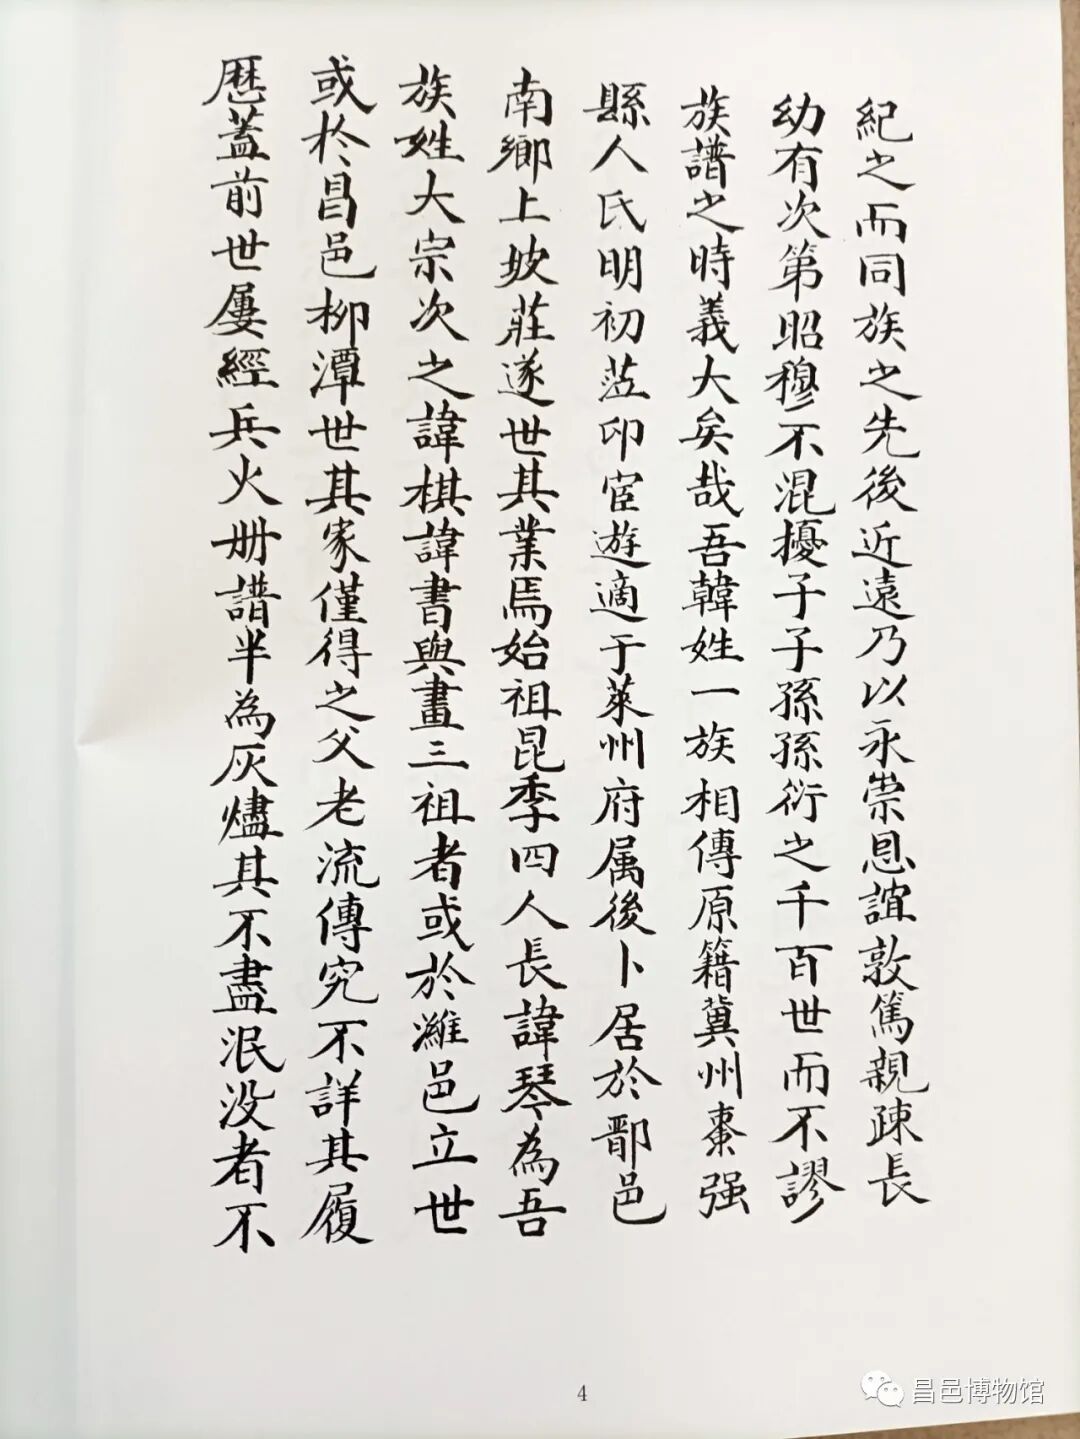 紀之而同族之先後近遠乃以永崇恩誼敦篤親疎長
幼有次第昭穆不混擾子子孫孫衍之千百世而不謬
族譜之時義大矣哉吾韓姓一族相傳原籍冀州棗强
縣人氏明初莅印宦遊適于萊州府属後卜居於鄑邑
南鄉上坡莊遂世其業焉始祖昆季四人長諱琴為吾
族姓大宗次之諱棋諱書與畫三祖者或於濰邑立世
或於昌邑柳潭世其家僅得之父老流傳究不詳其履
歷蓋前世屢經兵火册譜半為灰燼其不盡泯没者不
4
昌邑博物馆